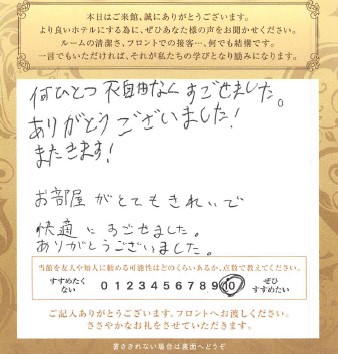 本日はご来館、誠にありがとうございます。
より良いホテルにする為に、ぜひあなた様の声をお聞かせください。
ルームの清潔さ、フロントでの接客…何でも結構です。
一言でもいただければ、それが私たちの学びとなり励みになります。
何ひとつ不自由なくすごせました。
ありがとうございました!
またきます!
お部屋がとてもきれいで
快適にすごせました。
ありがとうございました。
当館を友人や知人に勧める可能性はどのくらいあるか、点数で教えてください。
すすめたくない 0 1 2 3 4 5 6 7 8 9 10 ぜひすすめたい
ご記入ありがとうございます。フロントへお渡しください。
ささやかなお礼をさせていただきます。
書ききれない場合は裏面へどうぞ